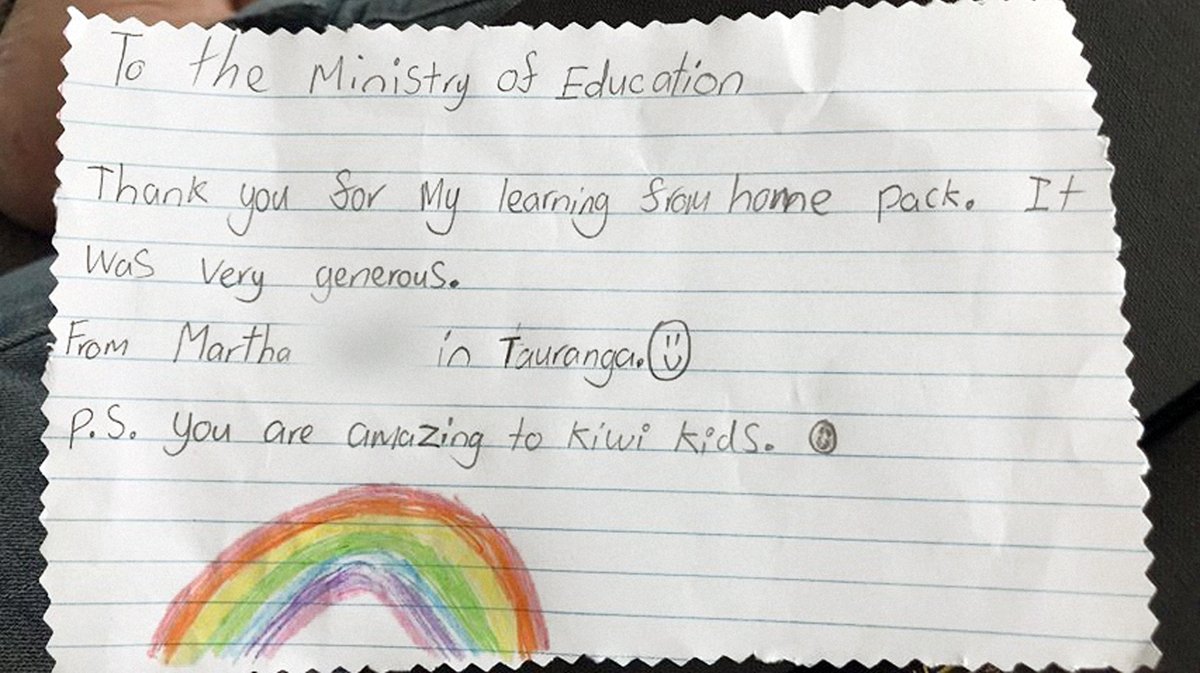 To the Ministry of Education
Thank you for My learning from home pack. It
was very generous.
From Martha in Tauranga.
P.S. you are amazing to kiwi kids.